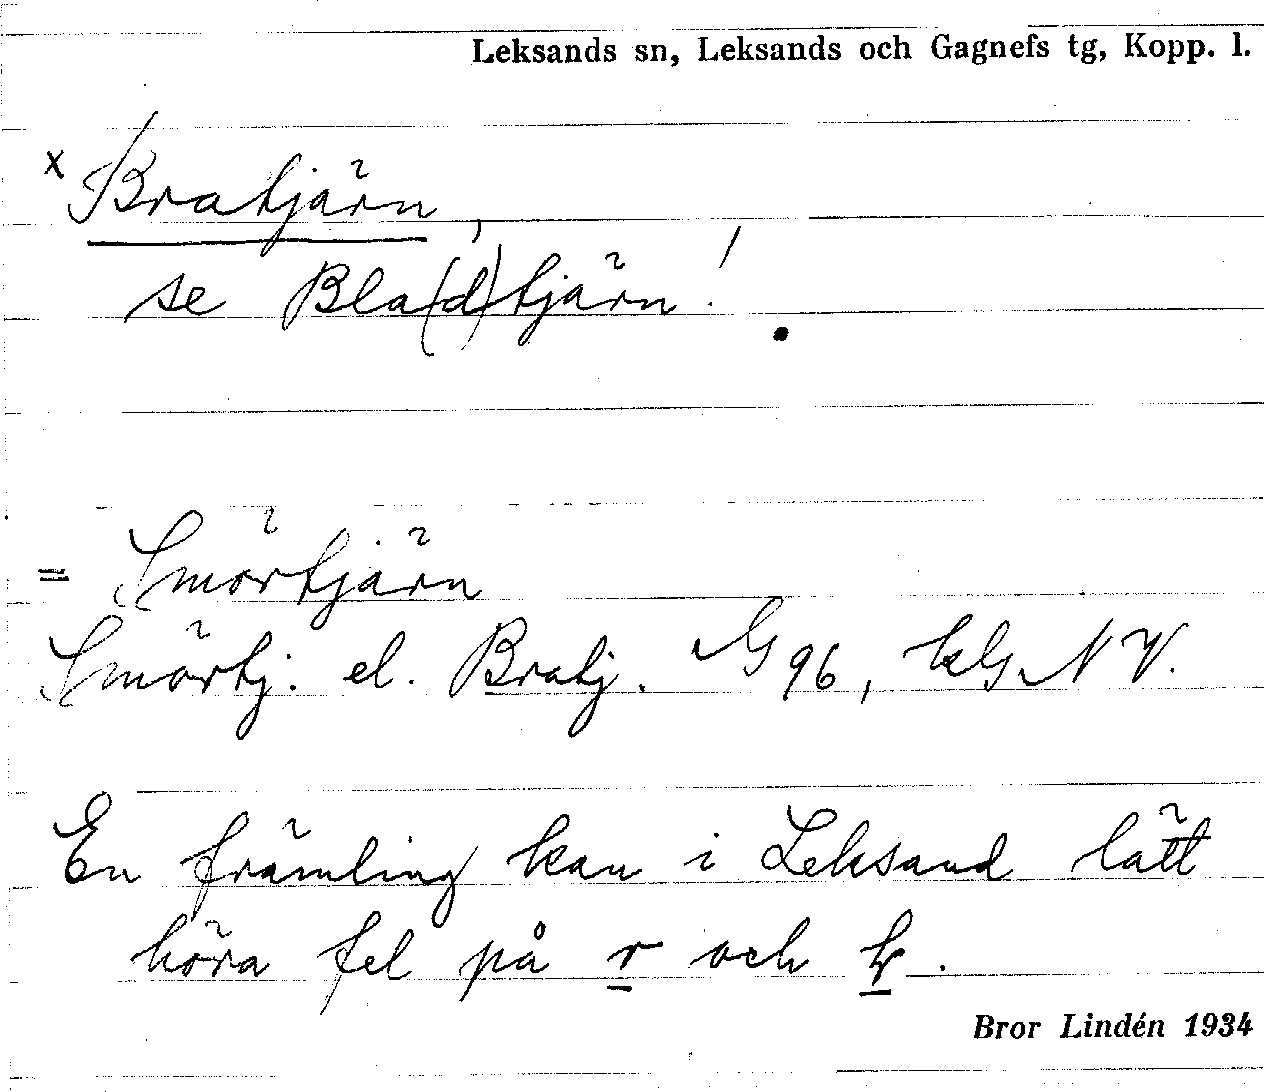 Leksands sn, Leksands och Gagnefs tg, Kopp. l.
x Bratjärn,
se Bla(d)tjärn!
= Smörtjärn
Smörtj. el. Bratj. G96, kG NV.
En främling kan i Leksand lätt
höra fel på r och
Bror Lindén 1934